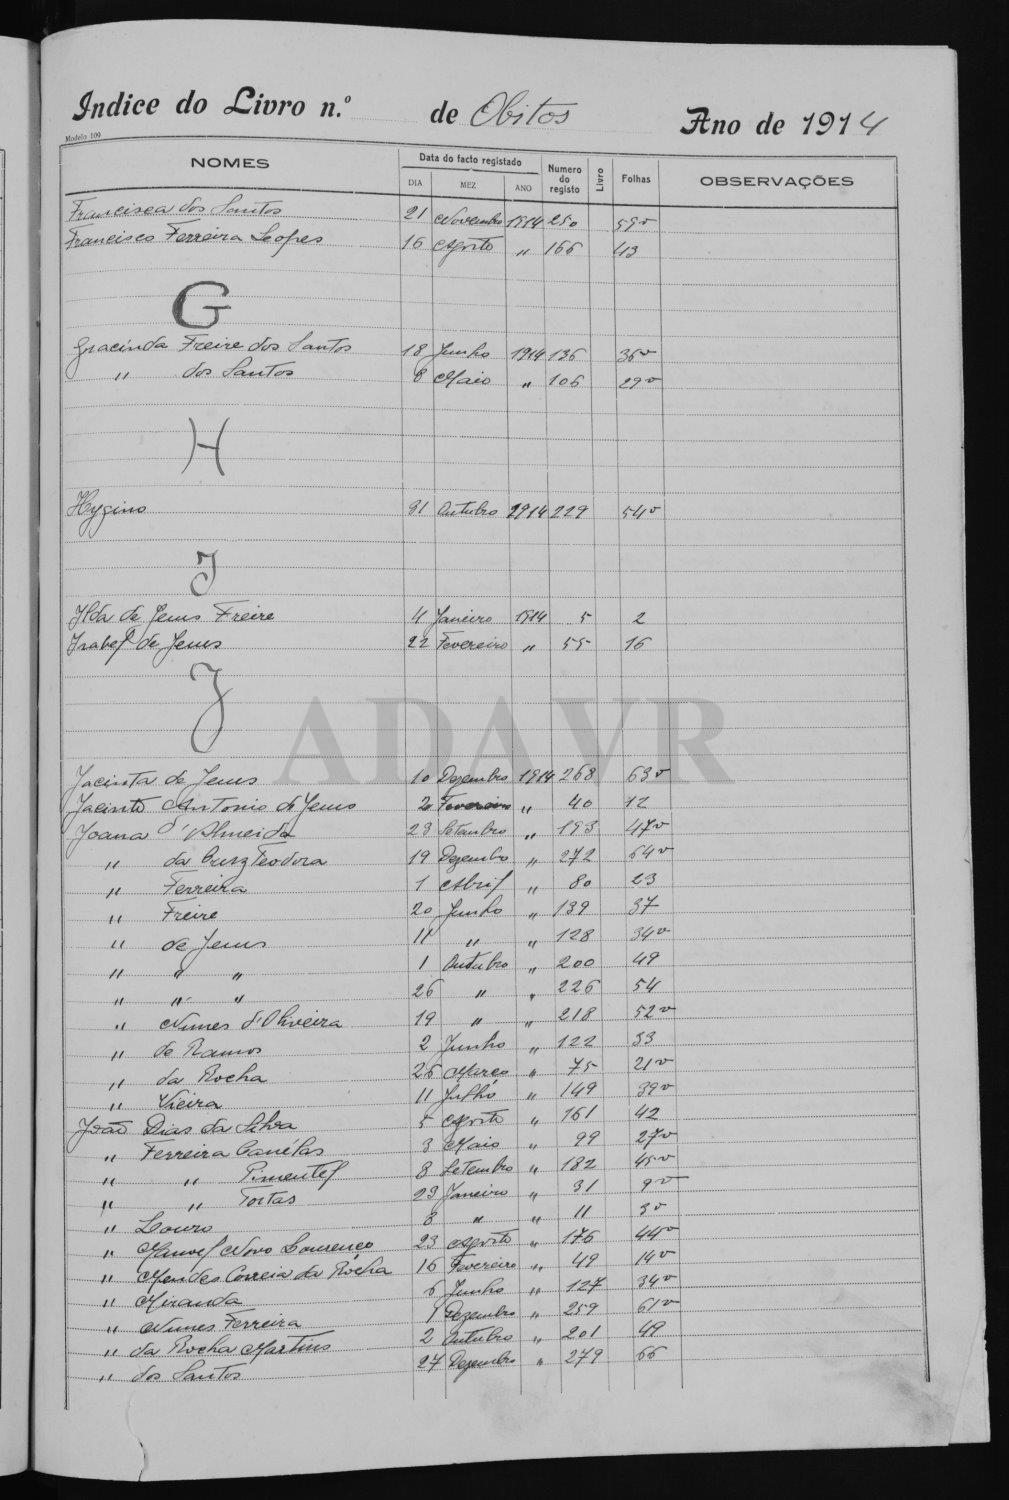 Indice do Livro n.º de Obitos Ano de 1914
Modelo 109
NOMES Data do facto registado Numero do registo Livro Folhas OBSERVAÇÕES
DIA MEZ ANO
Francisca dos Santos 21 Novembro 1914 250 59v
Francisco Ferreira Lopes 16 Agosto " 166 43
G
Gracinda Freire dos Santos 18 Junho 1914 136 36v
" dos Santos 8 Maio " 106 29v
H
Hygino 31 Outubro 1914 229 54v
I
Ilda de Jesus Freire 4 Janeiro 1914 5 2
Isabel de Jesus 22 Fevereiro " 55 16
J
ADAVR
Jacinta de Jesus 10 Dezembro 1914 268 63v
Jacinto Antonio de Jesus 2 Fevereiro " 40 12
Joana d'Almeida 23 Setembro " 193 47v
" da Cruz Teodora 19 Dezembro " 272 64v
" Ferreira 1 Abril " 80 23
" Freire 20 Junho " 139 37
" de Jesus 11 " " 128 34v
" " " 1 Outubro " 200 49
" " " 26 " " 226 54
" Nunes d'Oliveira 19 " " 218 52v
" de Ramos 2 Junho " 122 33
" da Rocha 26 Março " 75 21v
" Vieira 11 Julho " 149 39v
João Dias da Silva 5 Agosto " 161 42
" Ferreira Canélas 3 Maio " 99 27v
" " Pimentel 8 Setembro " 182 45v
" " Tortas 23 Janeiro " 31 9v
" Louro 8 " " 11 3v
" Manoel Novo Lourenço 23 Agosto " 176 44v
" Mendes Correia da Rocha 16 Fevereiro " 49 14v
" Miranda 6 Junho " 127 34v
" Nunes Ferreira 1 Dezembro " 259 61v
" da Rocha Martins 2 Outubro " 201 49
" dos Santos 27 Dezembro " 279 66